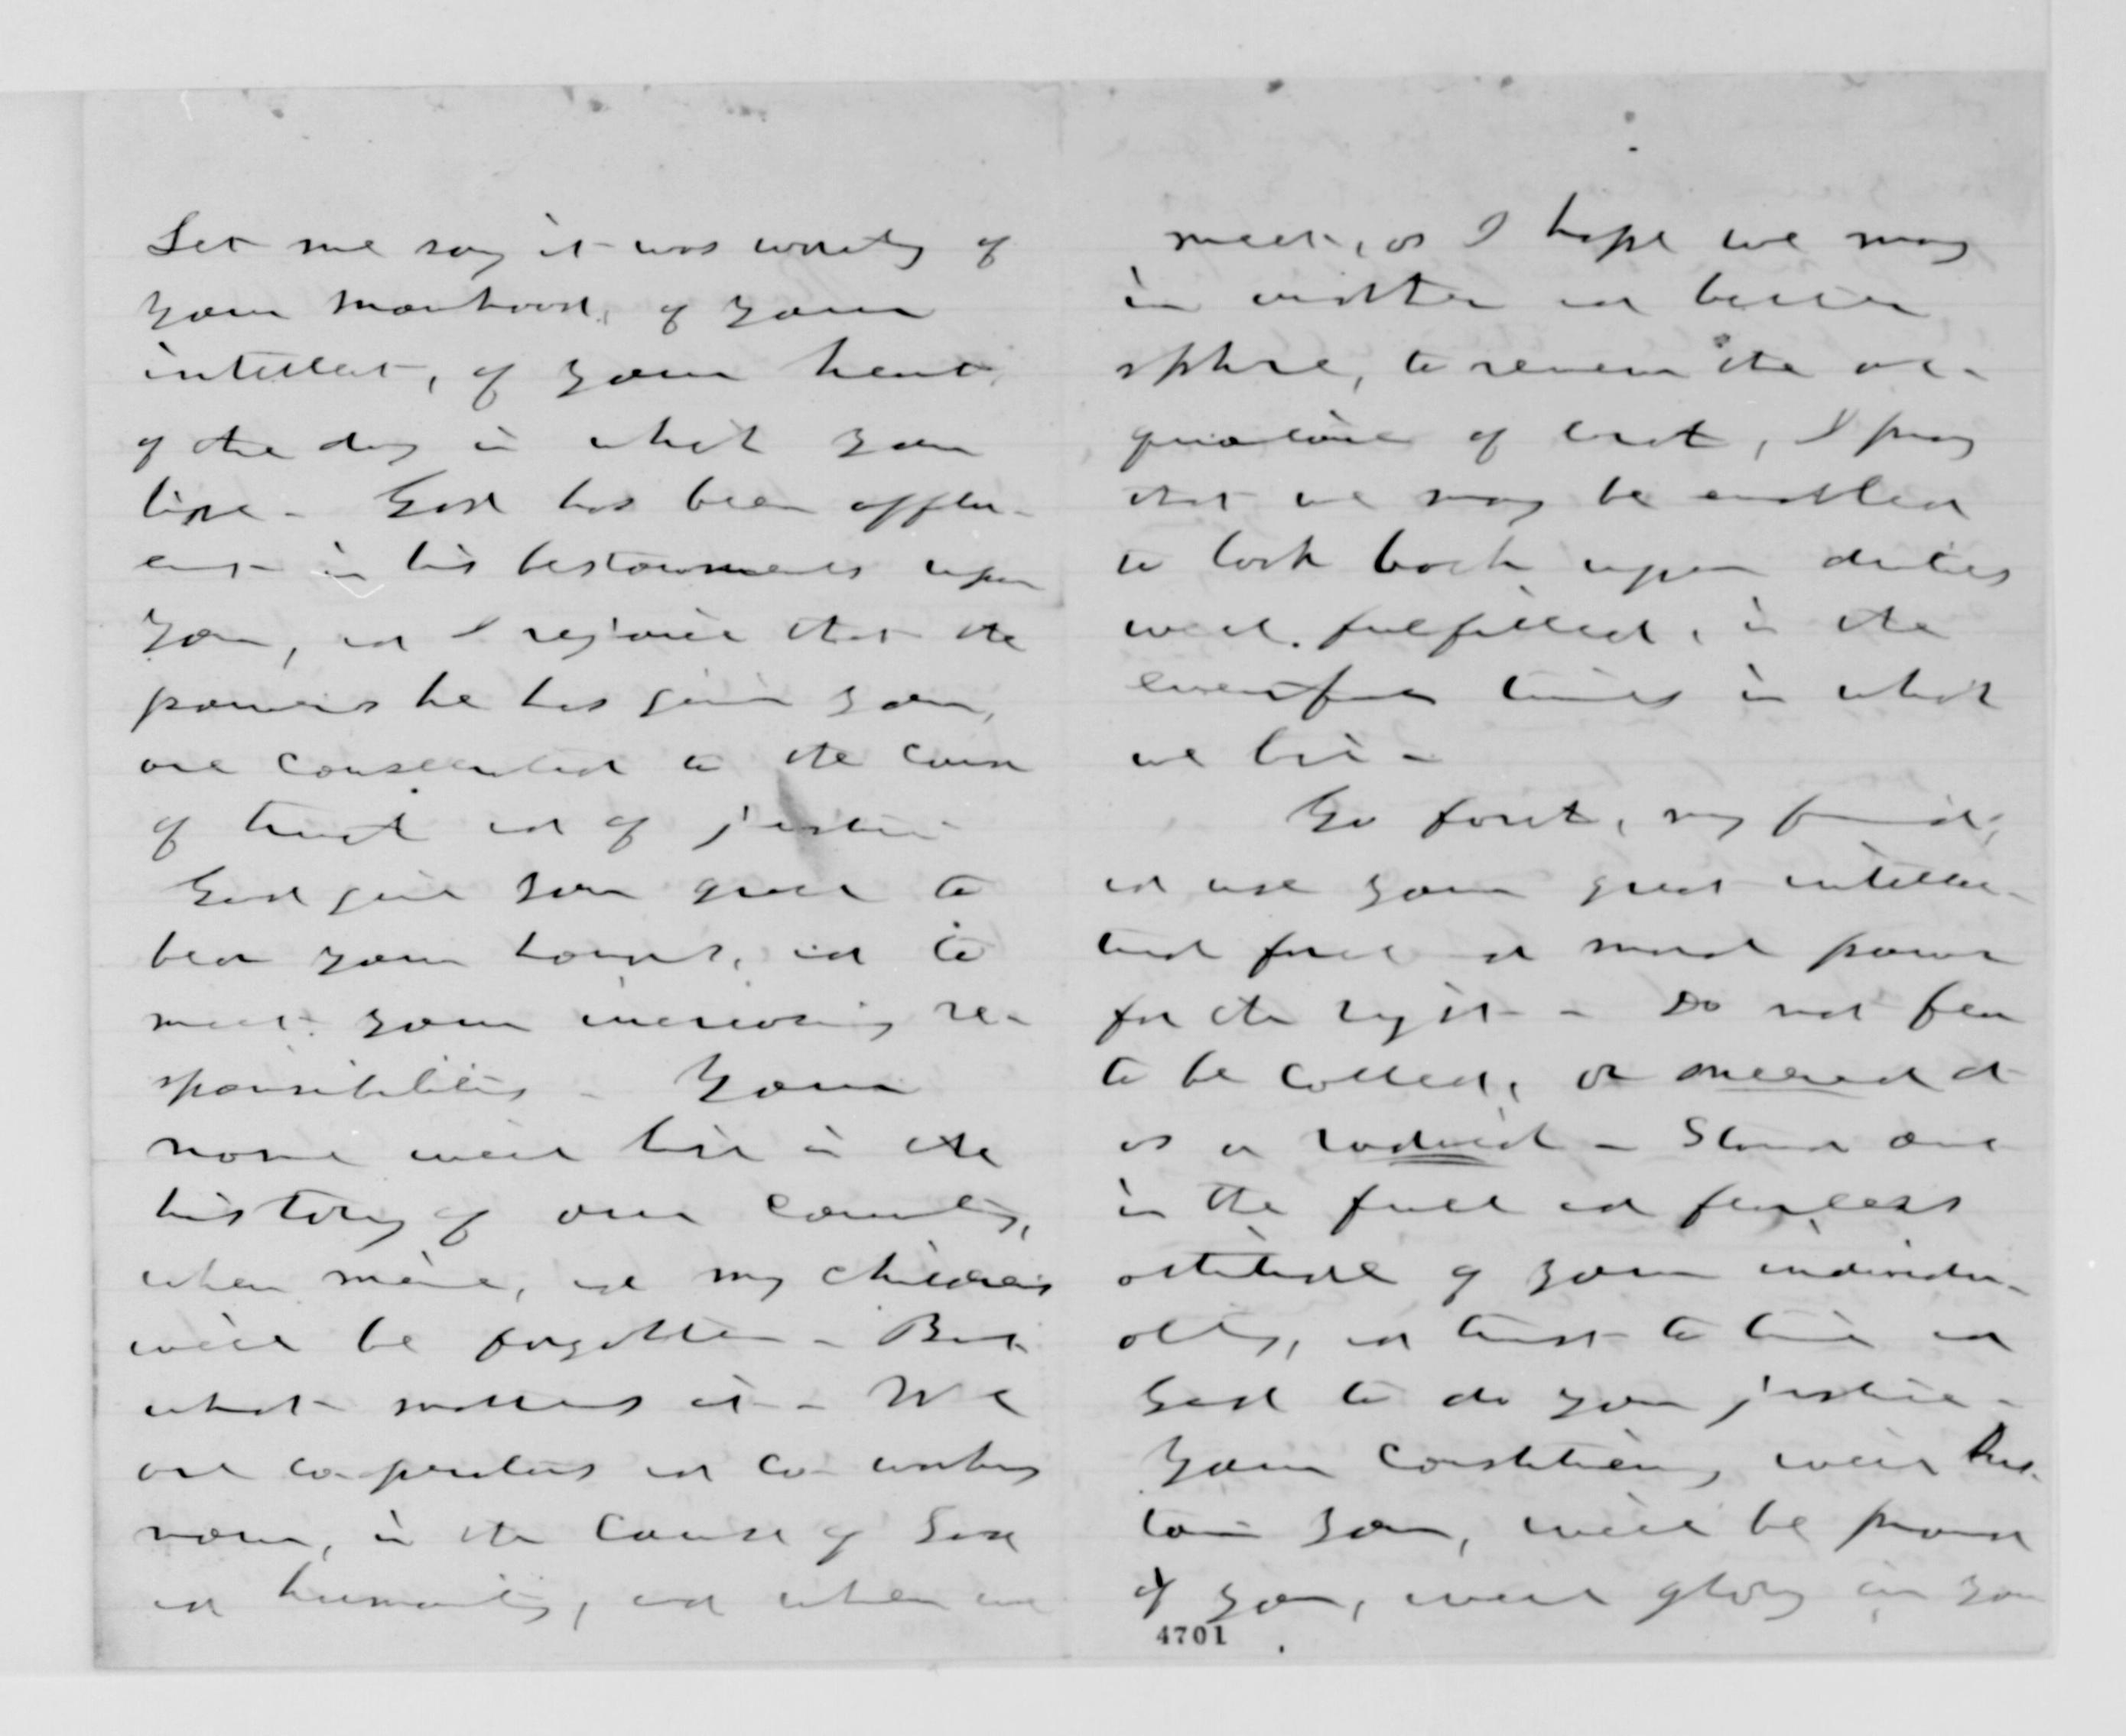 Let me say it was worthy of
your manhood, of your
intellect, of your heart,
of the day in which you
live - God has been afflu-
ent in his bestowments upon
you, and I rejoice that the
powers he has given you,
are consecrated to the cause
of truth and of justice
God give you grace to
bear your honors, and to
meet your increasing re-
sponsibilities - Your
name will live in the
history of our country,
when mine, and my children's
will be forgotten - But
what matters it - We
are co-operators and co-workers
now, in the cause of God
and humanity, and when we
meet, as I hope we may
in another and better
sphere, to renew the ac-
quaintance of earth, I pray
that we may be enabled
to look back upon duties
well fulfilled, in the
eventful times in which
we live -
Go forth, my friend,
and use your great intellec-
tual force and moral power
for the right - Do not fear
to be called, or sneered at
as a radical - Stand out
in the full and fearless
attitude of your individu-
ality, and trust to time and
God to do you justice -
Your constituency will sus-
tain you, will be proud
of you, will glory in you
4701